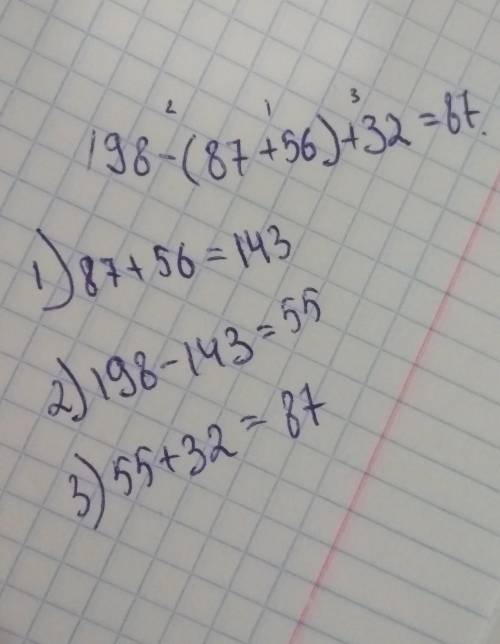 2 1 3
198-(87+56)+32=87.
1) 87+56=143
2) 198-143=55
3) 55+32=87